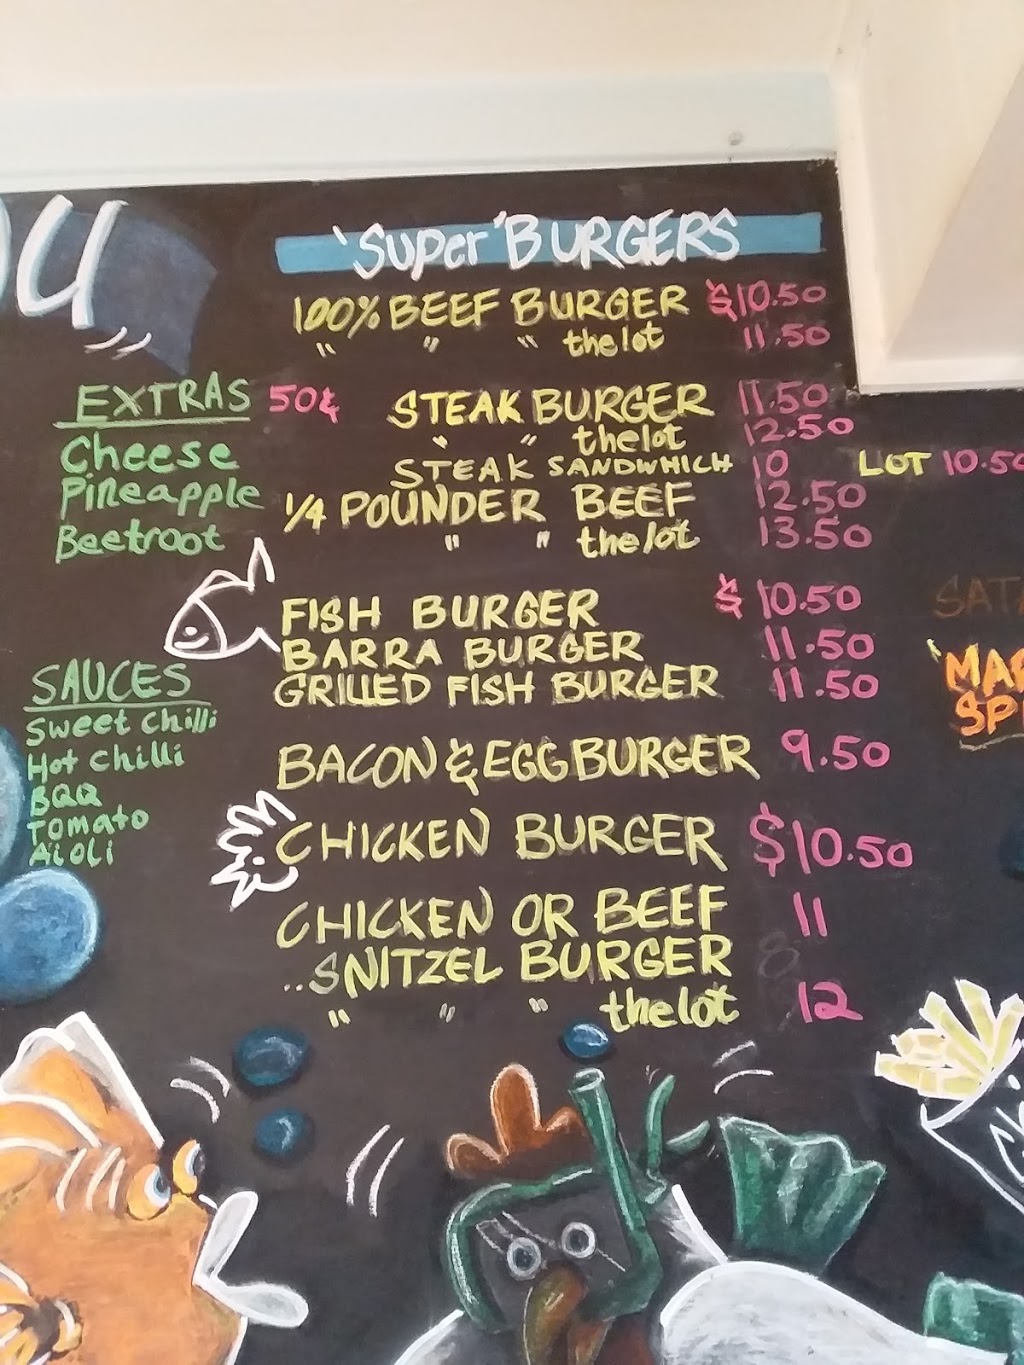 'Super' BURGERS
100% BEEF BURGER $10.50
" " " the lot 11.50
EXTRAS 50¢
Cheese
Pineapple
Beetroot
STEAK BURGER 11.50
" " the lot 12.50
STEAK SANDWHICH 10 LOT 10.50
1/4 POUNDER BEEF 12.50
" " the lot 13.50
FISH BURGER $10.50
BARRA BURGER 11.50
GRILLED FISH BURGER 11.50
SAUCES
Sweet chilli
Hot chilli
BQQ
Tomato
Aioli
BACON & EGG BURGER 9.50
CHICKEN BURGER $10.50
CHICKEN OR BEEF 11
..SNITZEL BURGER
" " " the lot 12